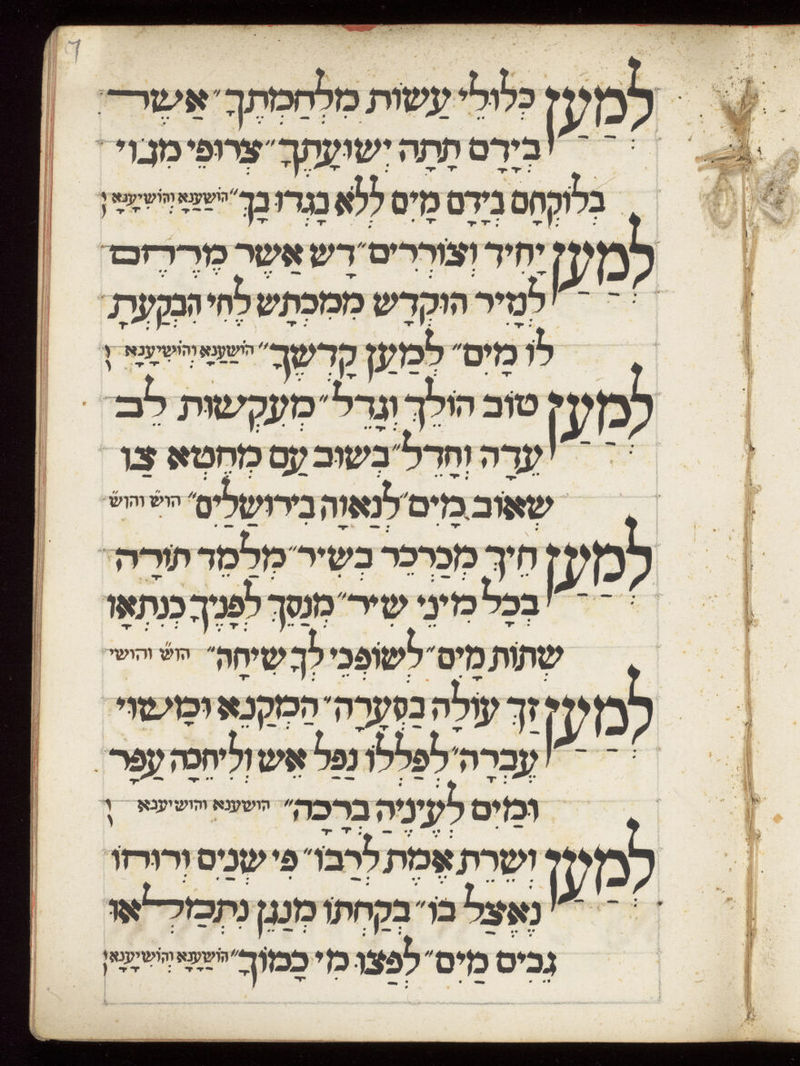 למען כלולי עשות מלחמתך" אשר
בידם תתה ישועתך" צרופי מגוי
בלוקחם בידם מים ללא בגדו בך" הושענא והושיענא
למען יחיד וצוררים" דש אשר מרחם
לנזיר הוקדש ממכתש לחי הבקעת
לו מים" למען קדשך" הושענא והושיענא
למען טוב הולך וגדל" מעקשות לב
עדה וחדל" בשוב עם מחטא צו
שאוב מים" לנאוה בירושלים" הוש והוש
למען חיך מכרכר בשיר" מלמד תורה
בכל מיני שיר" מנסך לפניך כנתאו
שתות מים" לשופכי לך שיחה" הוש והושי
למען זך עולה בסערה" המקנא ומשוי
עברה" לפללו נפל אש וליחכה עפר
ומים לעיניה ברכה" הושענא והושיענא
למען ושרת אמת לרבו" פי שנים ורוחו
נאצל בו" בקחתו מנגן נתמלאו
גבים מים" לפצו מי כמוך" הושענא והושיענא